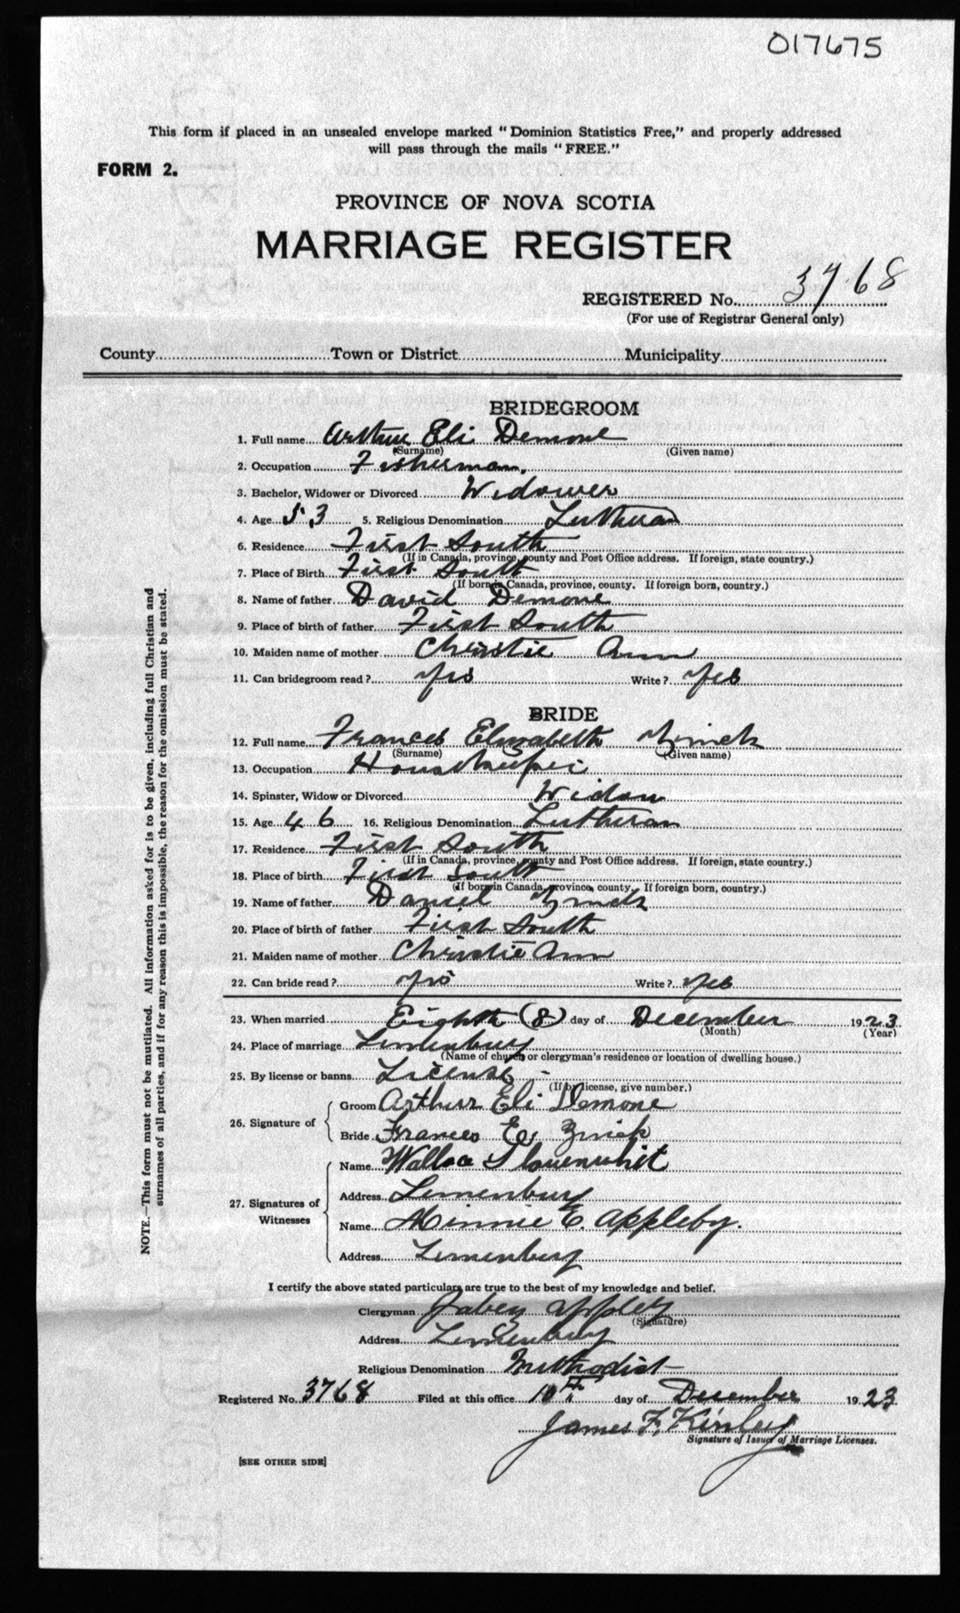 017675
This form if placed in an unsealed envelope marked "Dominion Statistics Free," and properly addressed
will pass through the mails "FREE."
FORM 2.
PROVINCE OF NOVA SCOTIA
MARRIAGE REGISTER
REGISTERED No. 3768
(For use of Registrar General only)
County Town or District Municipality
BRIDEGROOM
1. Full name Arthur Eli Demone
(Surname) (Given name)
2. Occupation Fisherman.
3. Bachelor, Widower or Divorced Widower
4. Age 53 5. Religious Denomination Lutheran
6. Residence First South
(If in Canada, province, county and Post Office address. If foreign, state country.)
7. Place of Birth First South
(If born in Canada, province, county. If foreign born, country.)
8. Name of father David Demone
9. Place of birth of father First South
10. Maiden name of mother Christie Ann
11. Can bridegroom read? Yes Write? Yes
BRIDE
12. Full name Frances Elizabeth Zinck
(Surname) (Given name)
13. Occupation Housekeeper
14. Spinster, Widow or Divorced Widow
15. Age 46 16. Religious Denomination Lutheran
17. Residence First South
(If in Canada, province, county and Post Office address. If foreign, state country.)
18. Place of birth First South
(If born in Canada, province, county. If foreign born, country.)
19. Name of father Daniel Zinck
20. Place of birth of father First South
21. Maiden name of mother Christie Ann
22. Can bride read? Yes Write? Yes
23. When married Eighth (8) day of December 1923
(Month) (Year)
24. Place of marriage Lunenburg
(Name of church or clergyman's residence or location of dwelling house.)
25. By license or banns License -
(If by license, give number.)
26. Signature of
Groom Arthur Eli Demone
Bride Frances E. Zinck
27. Signatures of Witnesses
Name Wallace
Address Lunenburg
Name Minnie E. Appleby.
Address Lunenburg
I certify the above stated particulars are true to the best of my knowledge and belief.
Clergyman Appleby
(Signature)
Address Lunenburg
Religious Denomination Methodist
Registered No. 3768 Filed at this office 10th day of December 1923
James F. Kinley
Signature of Issuer of Marriage Licenses.
[SEE OTHER SIDE]
NOTE.—This form must not be mutilated. All information asked for is to be given, including full Christian and
surnames of all parties, and if for any reason this is impossible, the reason for the omission must be stated.